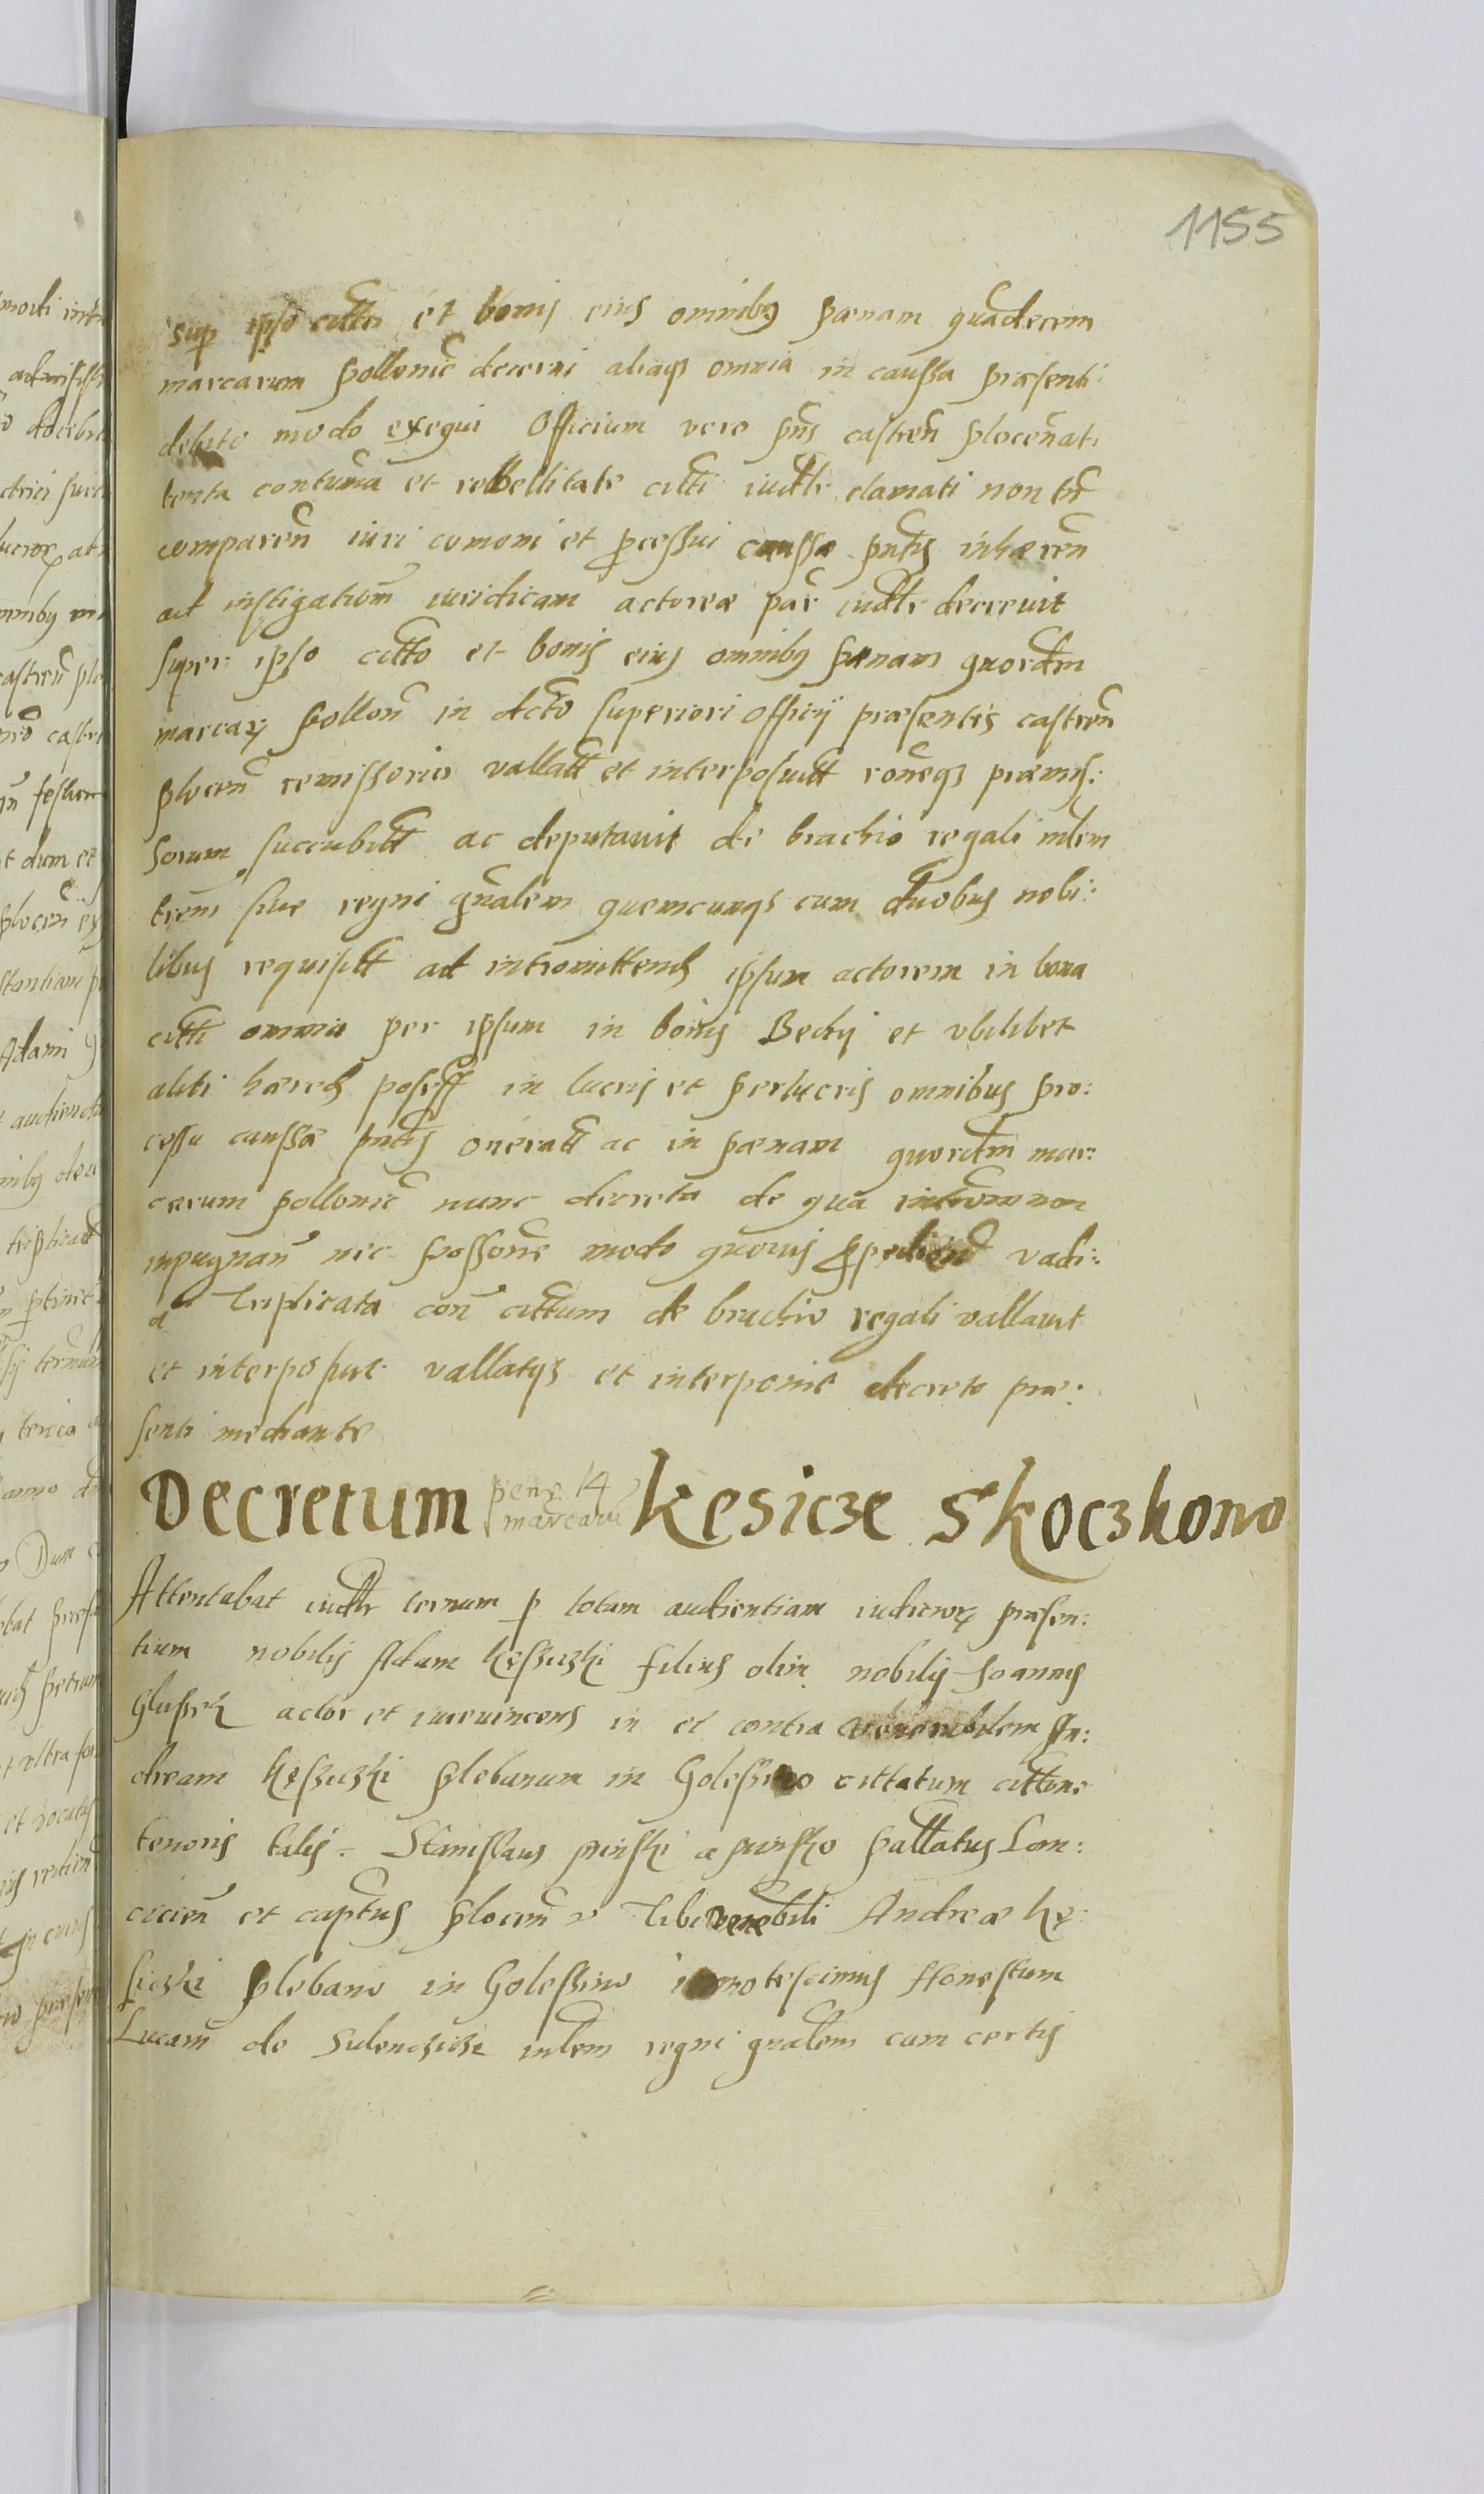 1155
sup ipso citto et bonis eius omnibus pænam quadecem
marcarum pollonic decerni aliaqs omnia in caussa præsenti
debito modo exequi Officium vero pns castren plocen at
tenta contuma et rebellitate citti iudlr clamati non tn
comparen iuri comoni et pcessui caussæ pntis inhæren
ad instigationem iuridicam actoreæ par iudlr decrevit
super ipso citto et bonis eius omnibus pænam quordm
marcar pollon in dcto superiori officij præsentis castren
plocen remissorio vallatt et interposuitt roneqs præmis:
sorum succubitt ac deputavit de brachio regali mlem
trem sive regni gnalem quemcunqs cum duobus nobi:
libus requisitt ad intromittend ipsum actorem in bona
citti omnia per ipsum in bonis Bedy et ubilibet
alibi hæred possess in lucris et perlucris omnibus pro:
cessu caussæ pntis oneratt ac in pænam quordm mar:
carum pollonic nunc decreta de qua non
inpugnan nec possone modo quovis vadi:
a triplicata con cittum de brachio regali vallavit
et interposuit vallatqs et interponit decreto præ:
senti mediante
Decretum penę 14 marcaru Kęsicze Skoczkowo
Attentabat iudlr ternum p totam audientiam iudicior præsen:
tium nobilis Adam Kęssiczki filius olim nobilis Joannis
Glusek actor et iurevincens in et contra venerabilem An:
dream Kęsziczki plebanum in Golessino cittatum cittone
tenoris talis. Stanislaus pinski a pinsko pallatus Lan:
cicien et captus plocen & Tibi venebili Andreæ Kę:
siczki plebano in Golessino innotescimus Honestum
Lucam de Sulenczice mlem regni gnalem cum certis